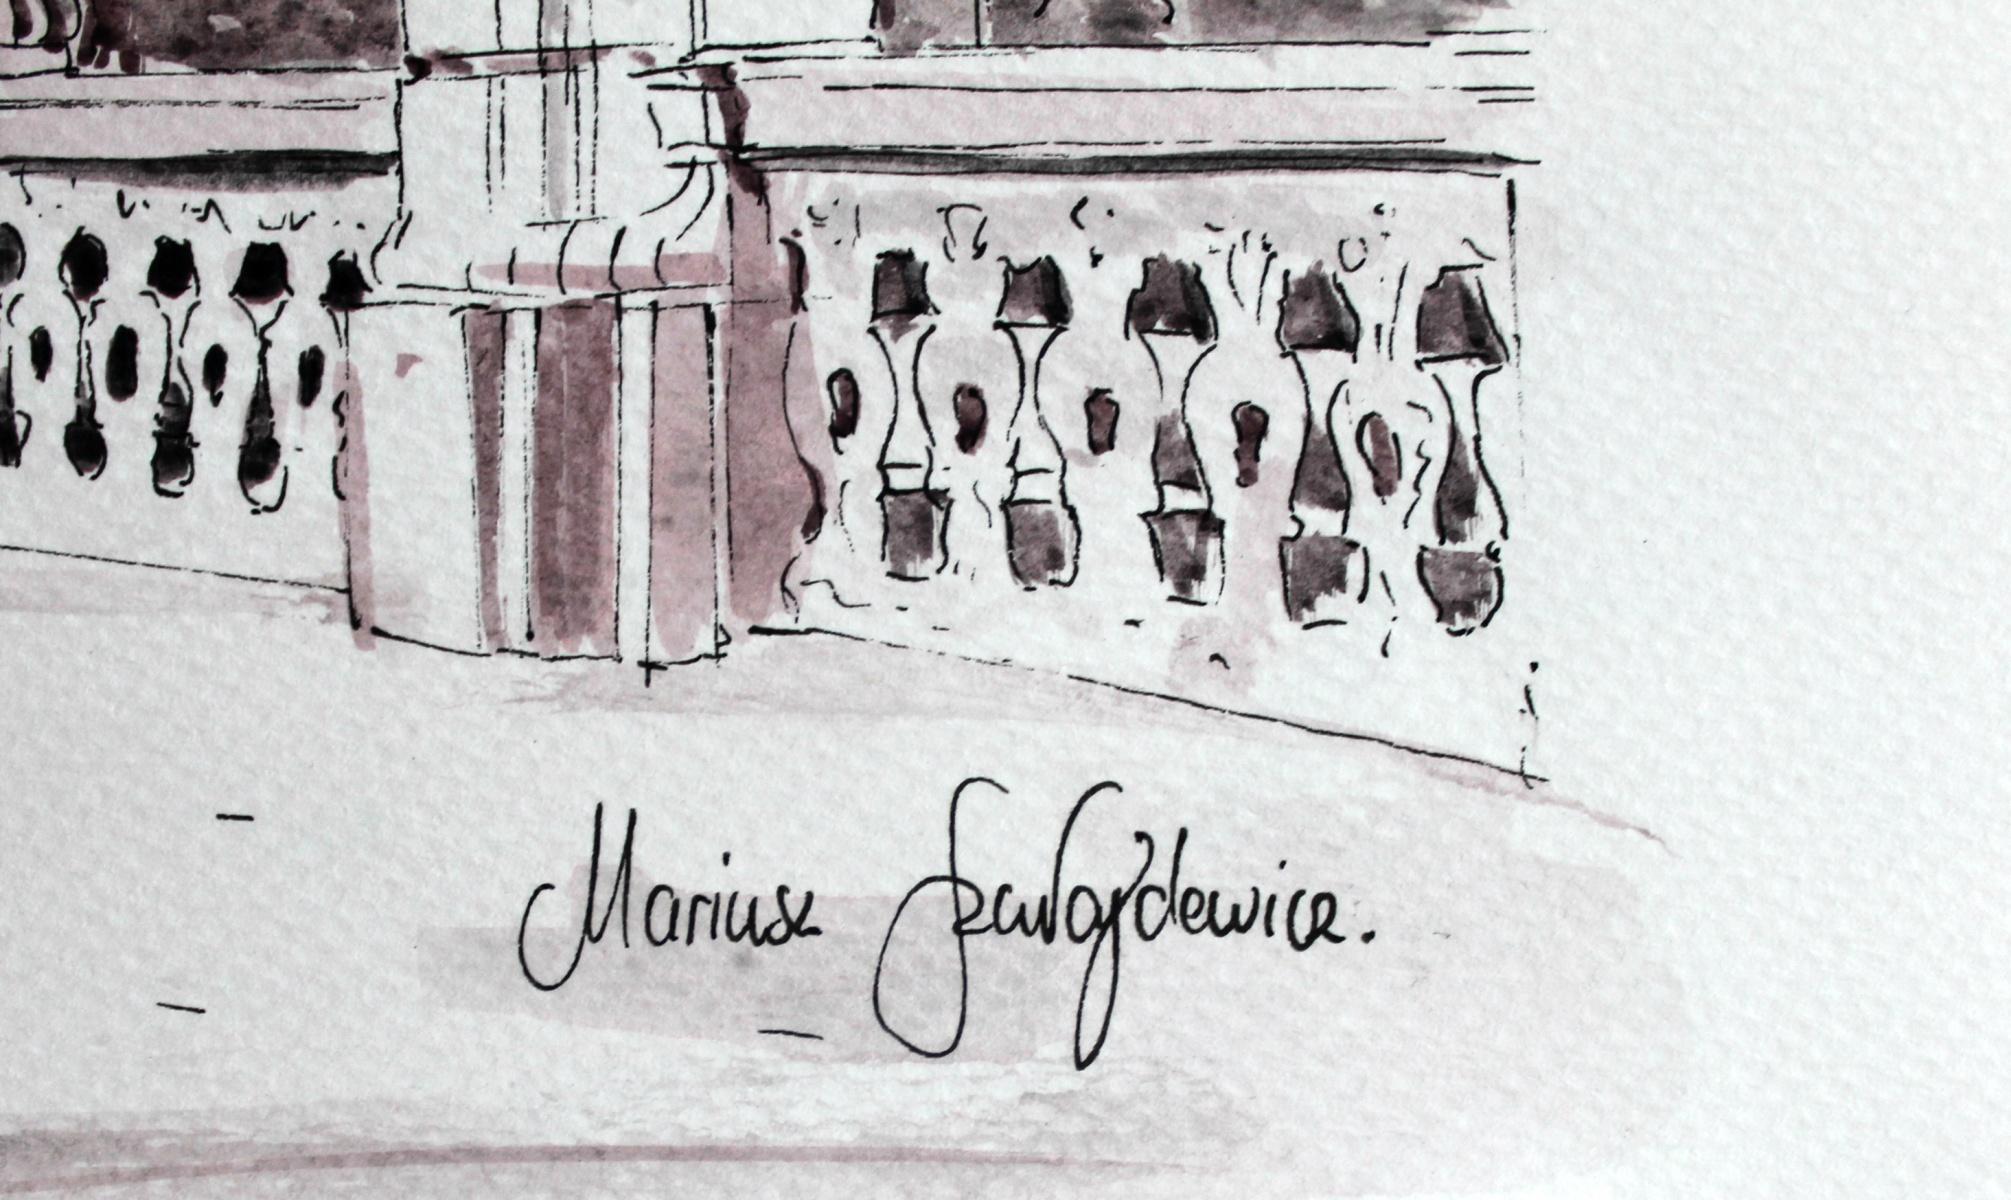 Mariusz Szwajdewicz.